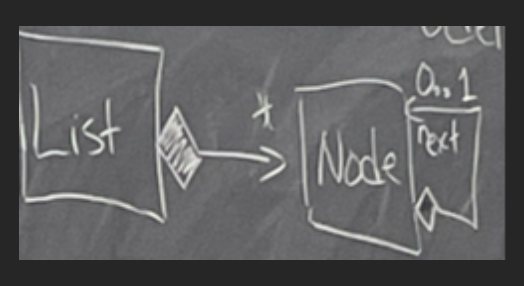 List
*
Node
0..1
next